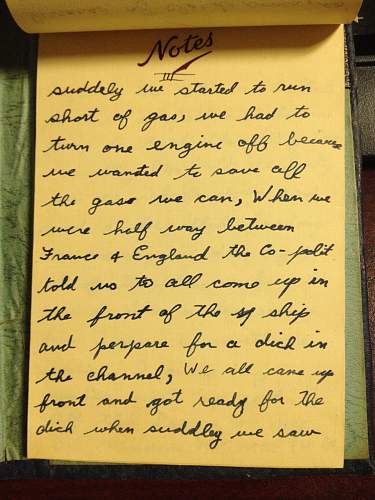 Notes
III
suddely we started to run
short of gas, we had to
turn one engine off because
we wanted to save all
the gass we can, When we
were half way between
France & England the Co-polit
told us to all come up in
the front of the ship
and perpare for a dich in
the channel, We all came up
front and got ready for The
dich when suddley we saw